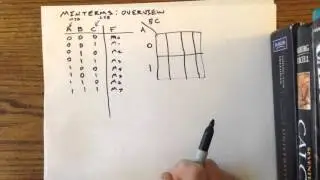 MINTERMS: OVERVIEW
MSB LSB
A B C F
0 0 0 m0
0 0 1 m1
0 1 0 m2
0 1 1 m3
1 0 0 m4
1 0 1 m5
1 1 0 m6
1 1 1 m7
BC
A
0
1
CALC